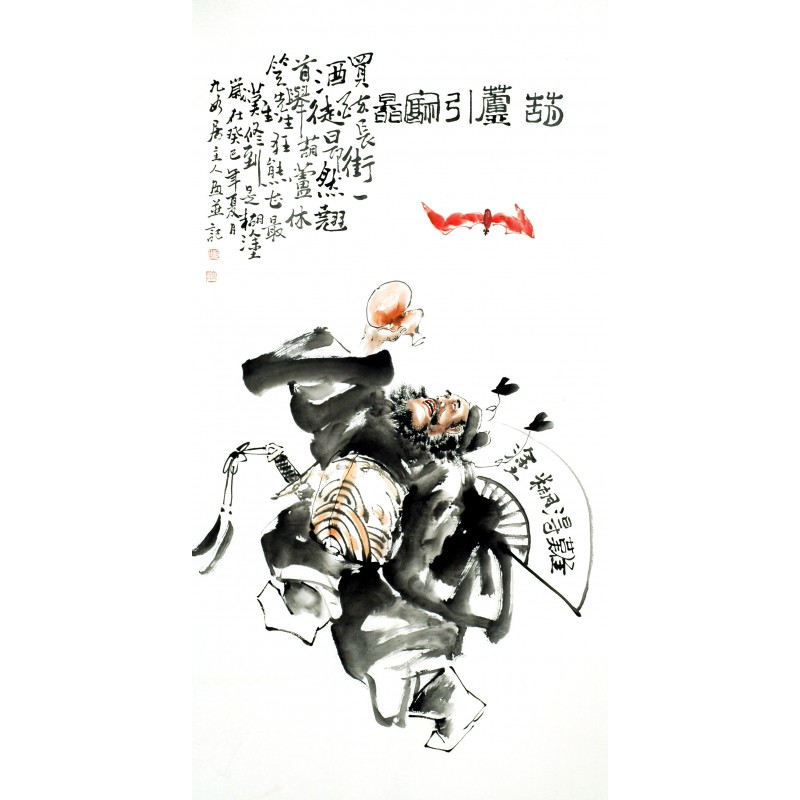 葫蘆引
買醉長街一
酒徒昂然翹
首舉葫蘆休
笑先生狂態甚最
難修到是糊塗
歲在癸巳年夏月
九如居主人画並記
難得糊塗